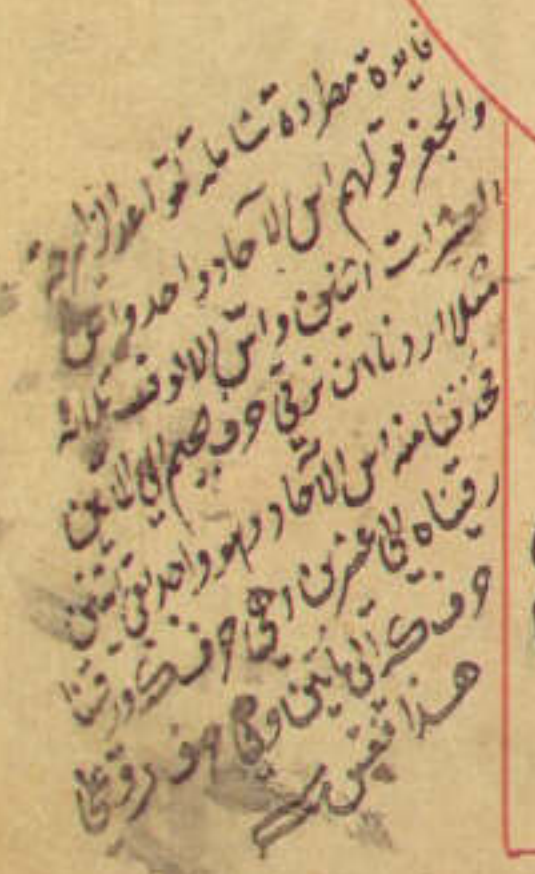 فايدة مطردة شاملة لقواعد الزايرجة
والجفر قولهم اس الاحاد واحد واس
العشرات اثنين واس الالوف ثلاثه
مثلا اردنا ان نرقي حرف الي
فحذفنا منه اس الآحاد وهو واحد بقي اثنين
رقيناه الى عشرين وهي حرف ك ورقينا
حرف ك الى مايتين وهي حرف ر وعلى
هذا فقس